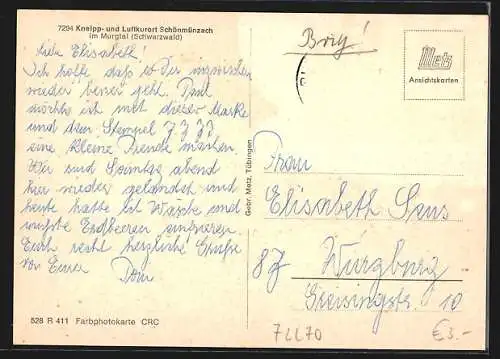 7294 Kneipp- und Luftkurort Schönmünzach
im Murgtal (Schwarzwald)
Liebe Elisabeth!
Ich hoffe daß es Dir inzwischen
wieder besser geht. Paul
möchte ich mit dieser Marke
und dem Stempel
eine kleine Freude machen.
Wir sind Sonntag abend
hier wieder gelandet und
heute hatte ich Wäsche und
mußte Erdbeeren
Euch recht herzliche Grüße
von Eurer
528 R 411 Farbphotokarte CRC
Gebr. Metz, Tübingen
Brig!
Metz
Ansichtskarten
Frau
Elisabeth Sens
87 Würzburg
10
72270
€3.-